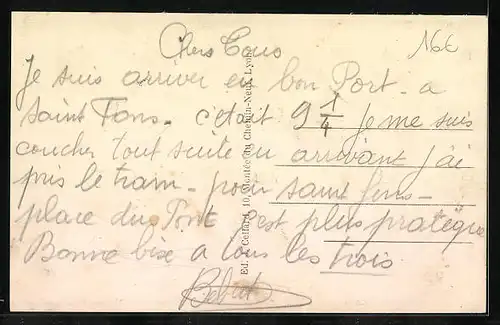 Chers Tous
16€
Je suis arriver en bon Port - a
Saint Fons - c'était 9 1/4 je me suis
coucher tout suite en arrivant j'ai
pris le tram - pour saint fons -
place du Pont c'est plus pratique
Bonne bise a tous les trois
Bébert
Ed. E. Cellard, 10, Montée du Chemin-Neuf, Lyon